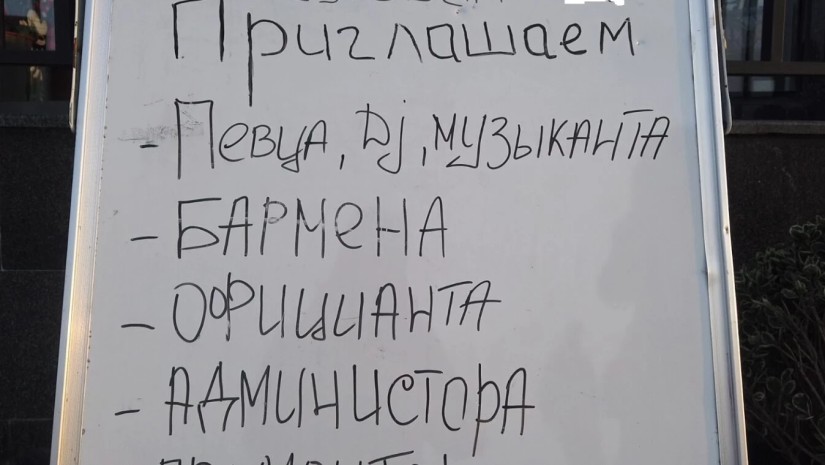 Приглашаем
- Певца, Dj, музыканта
- БАРМЕНА
- ОФИЦИАНТА
- АДМИНИСТОРА